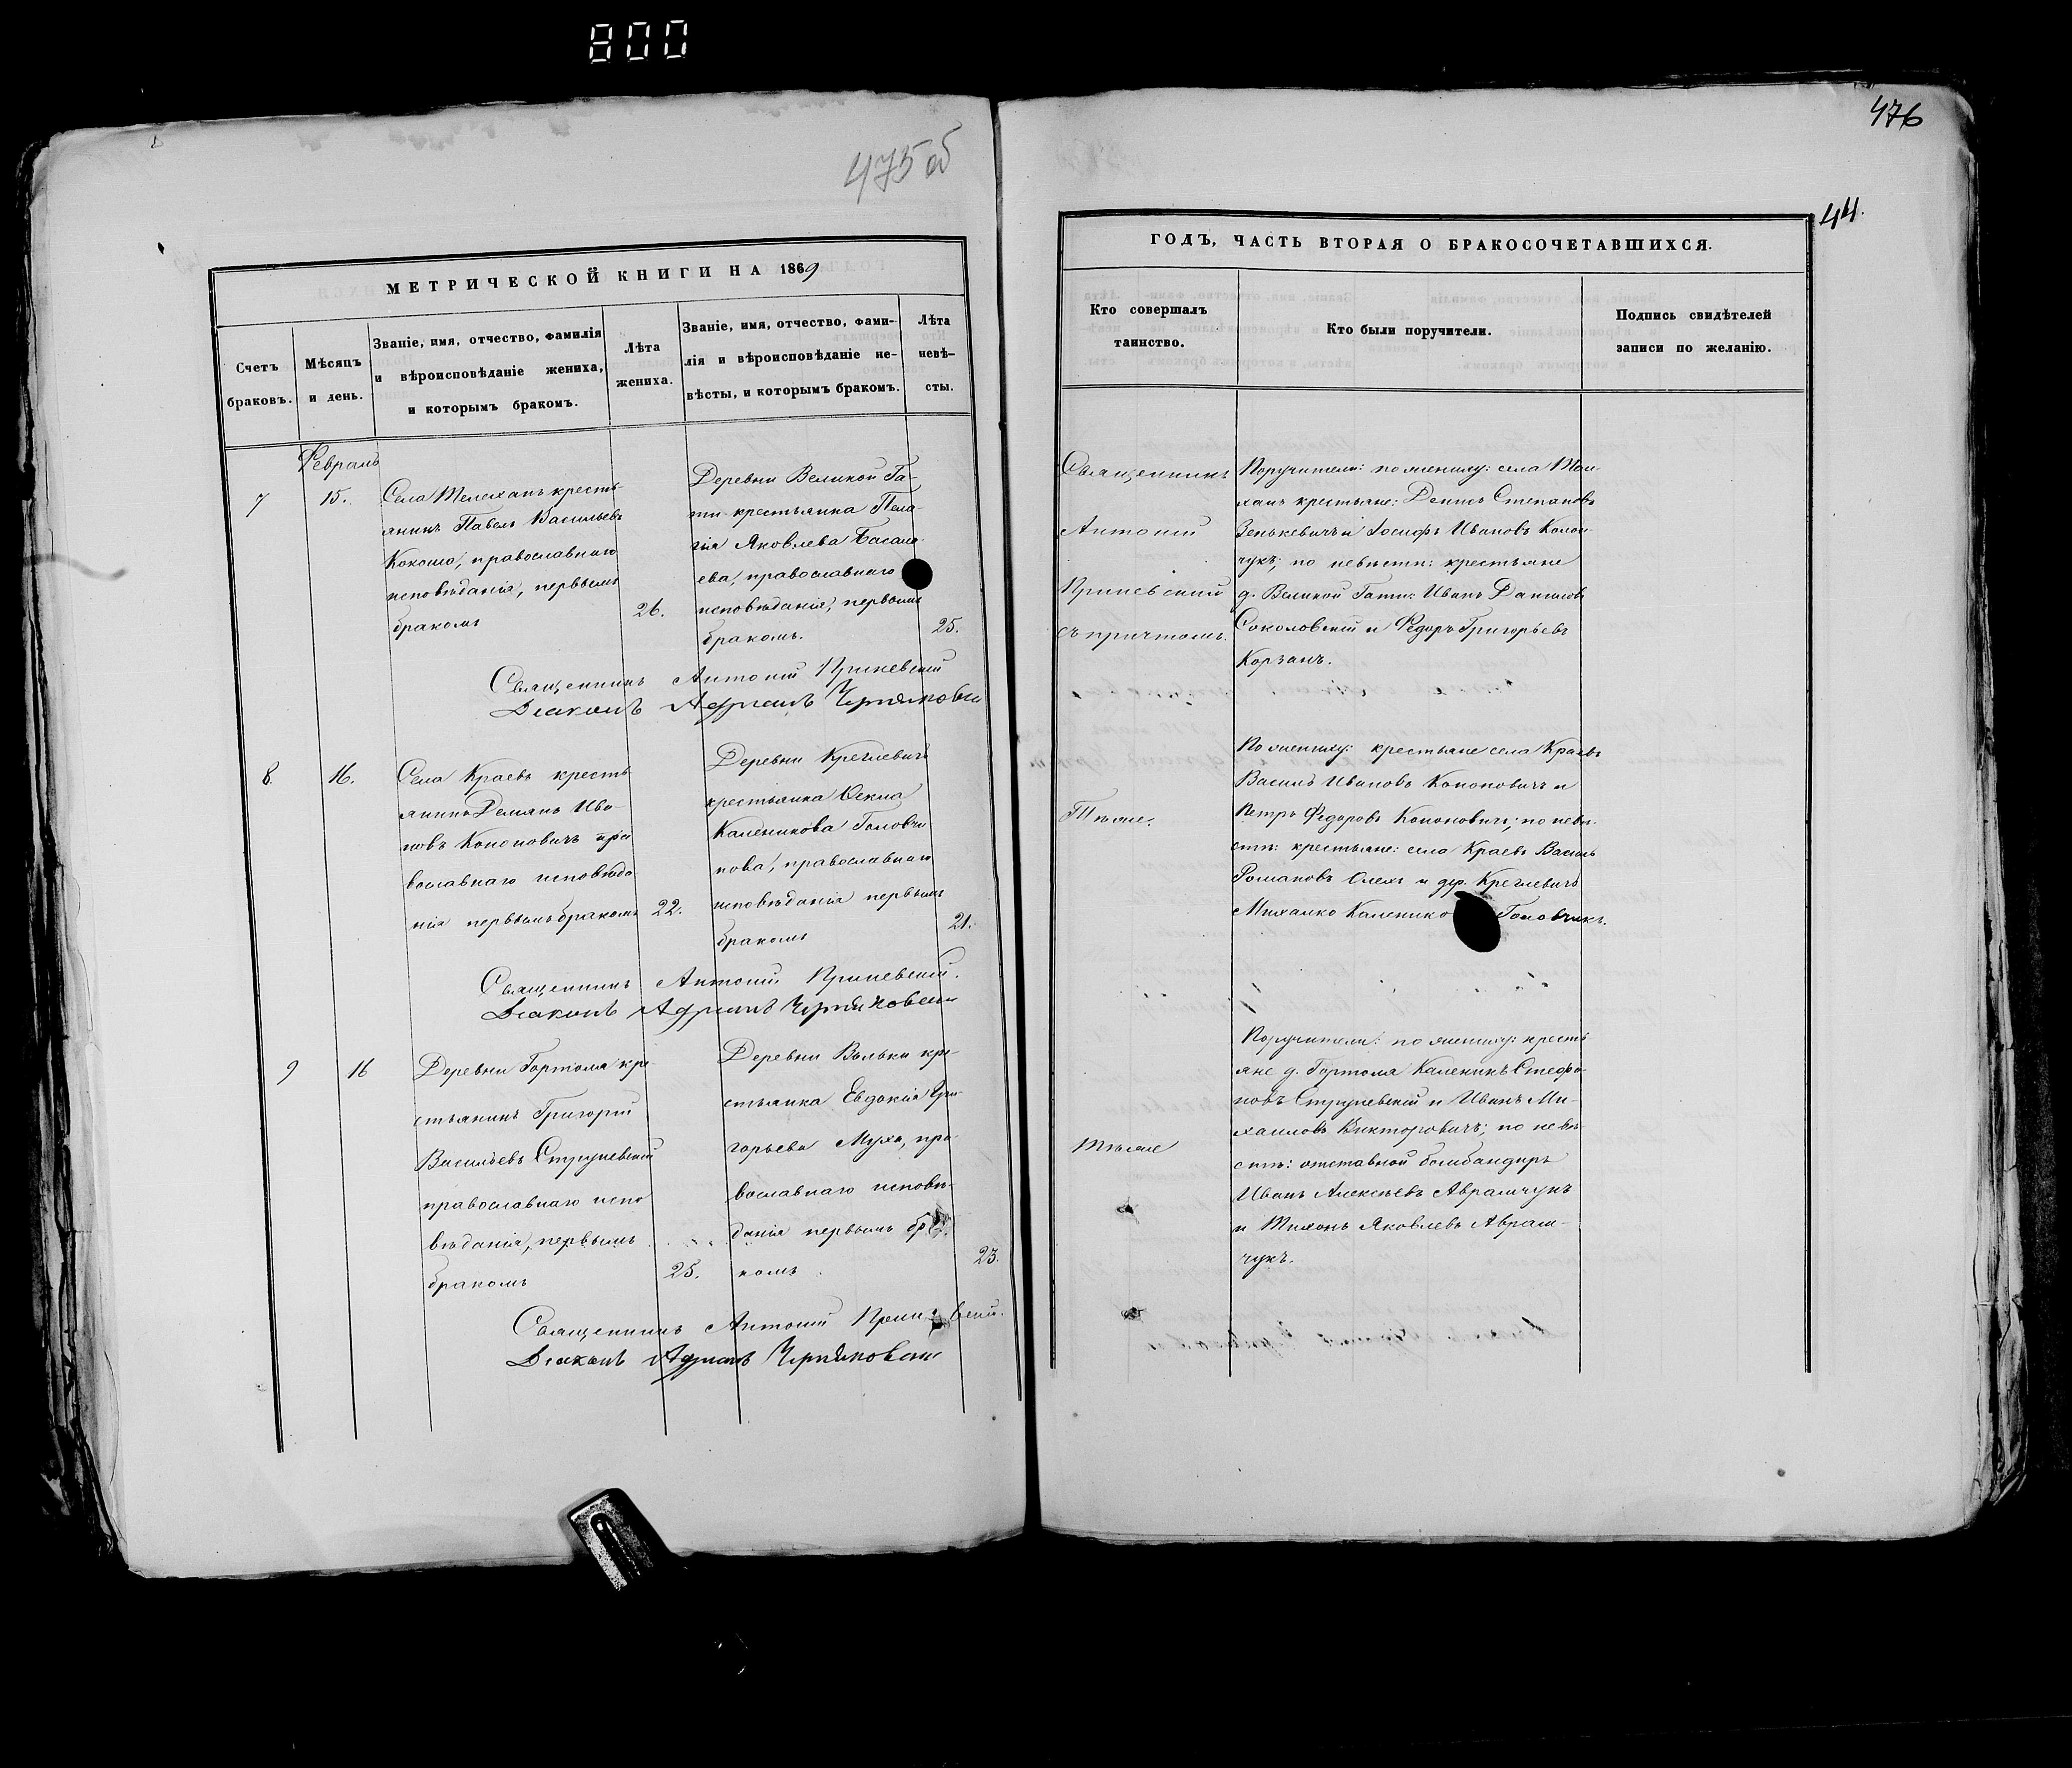 800
475 об
476
44.
МЕТРИЧЕСКОЙ КНИГИ НА 1869
Счетъ
браковъ.
Мѣсяцъ
и день.
Званіе, имя, отчество, фамилія
и вѣроисповѣданіе жениха,
и которымъ бракомъ.
Лѣта
жениха.
Званіе, имя, отчество, фами-
лія и вѣроисповѣданіе не-
вѣсты, и которымъ бракомъ.
Лѣта
невѣ-
сты.
Февраль
7
15.
Села Телеханъ кресть-
янинъ Павелъ Васильевъ
Кокошо, православнаго
исповѣданія, первымъ
бракомъ
26.
Деревни Великой Га-
ти крестьянка Пела-
гія Яковлева Басала-
ева, православнаго
исповѣданія, первымъ
бракомъ.
25.
Священникъ Антоній Приневскій
Діаконъ Адріанъ Черняковскій
8
16.
Села Краевъ кресть
янинъ Демянъ Ива-
новъ Кононовичъ пра
вославнаго исповѣда
нія первымъ бракомъ
22.
Деревни Кречлевичъ
крестьянка Ѳекла
Каленикова Головчи
нова, православнаго
исповѣданія первымъ
бракомъ
21.
Священникъ Антоній Приневскій.
Діаконъ Адріанъ Черняковскій
9
16
Деревни Гортоля кре-
стьянинъ Григорій
Васильевъ Струневскій
православнаго испо
вѣданія, первымъ
бракомъ
25.
Деревни Вольки кре-
стьянка Евдокія Гри-
горьева Муха, пра-
вославнаго исповѣ-
данія первымъ бра-
комъ
23.
Священникъ Антоній Приневскій.
Діаконъ Адріанъ Черняковскій
ГОДЪ, ЧАСТЬ ВТОРАЯ О БРАКОСОЧЕТАВШИХСЯ.
Кто совершалъ
таинство.
Кто были поручители.
Подпись свидѣтелей
записи по желанію.
Священникъ
Антоній
Приневскій
съ причтомъ.
Поручители: по жениху: села Теле-
ханъ крестьяне: Денисъ Степановъ
Зенькевичъ и Іосифъ Ивановъ Колон-
чукъ; по невѣстѣ: крестьяне
д. Великой Гати: Иванъ Даниловъ
Соколовскій и Ѳедоръ Григорьевъ
Корзанъ.
Тѣже.
По жениху: крестьяне села Краевъ
Василь Ивановъ Кононовичъ и
Петръ Ѳедоровъ Кононовичъ; по невѣ-
стѣ: крестьяне: села Краевъ Василь
Романовъ Олехъ и дер. Кречлевичъ
Михалко Каленико Головчикъ.
Тѣже
Поручители: по жениху: кресть
яне д. Гортоля Каленикъ Стефа-
новъ Струневскій и Иванъ Ми-
хаиловъ Викторовичъ; по невѣ-
стѣ: отставной бомбандиръ
Иванъ Алексѣевъ Аврамчукъ
и Тихонъ Яковлевъ Аврам-
чукъ.